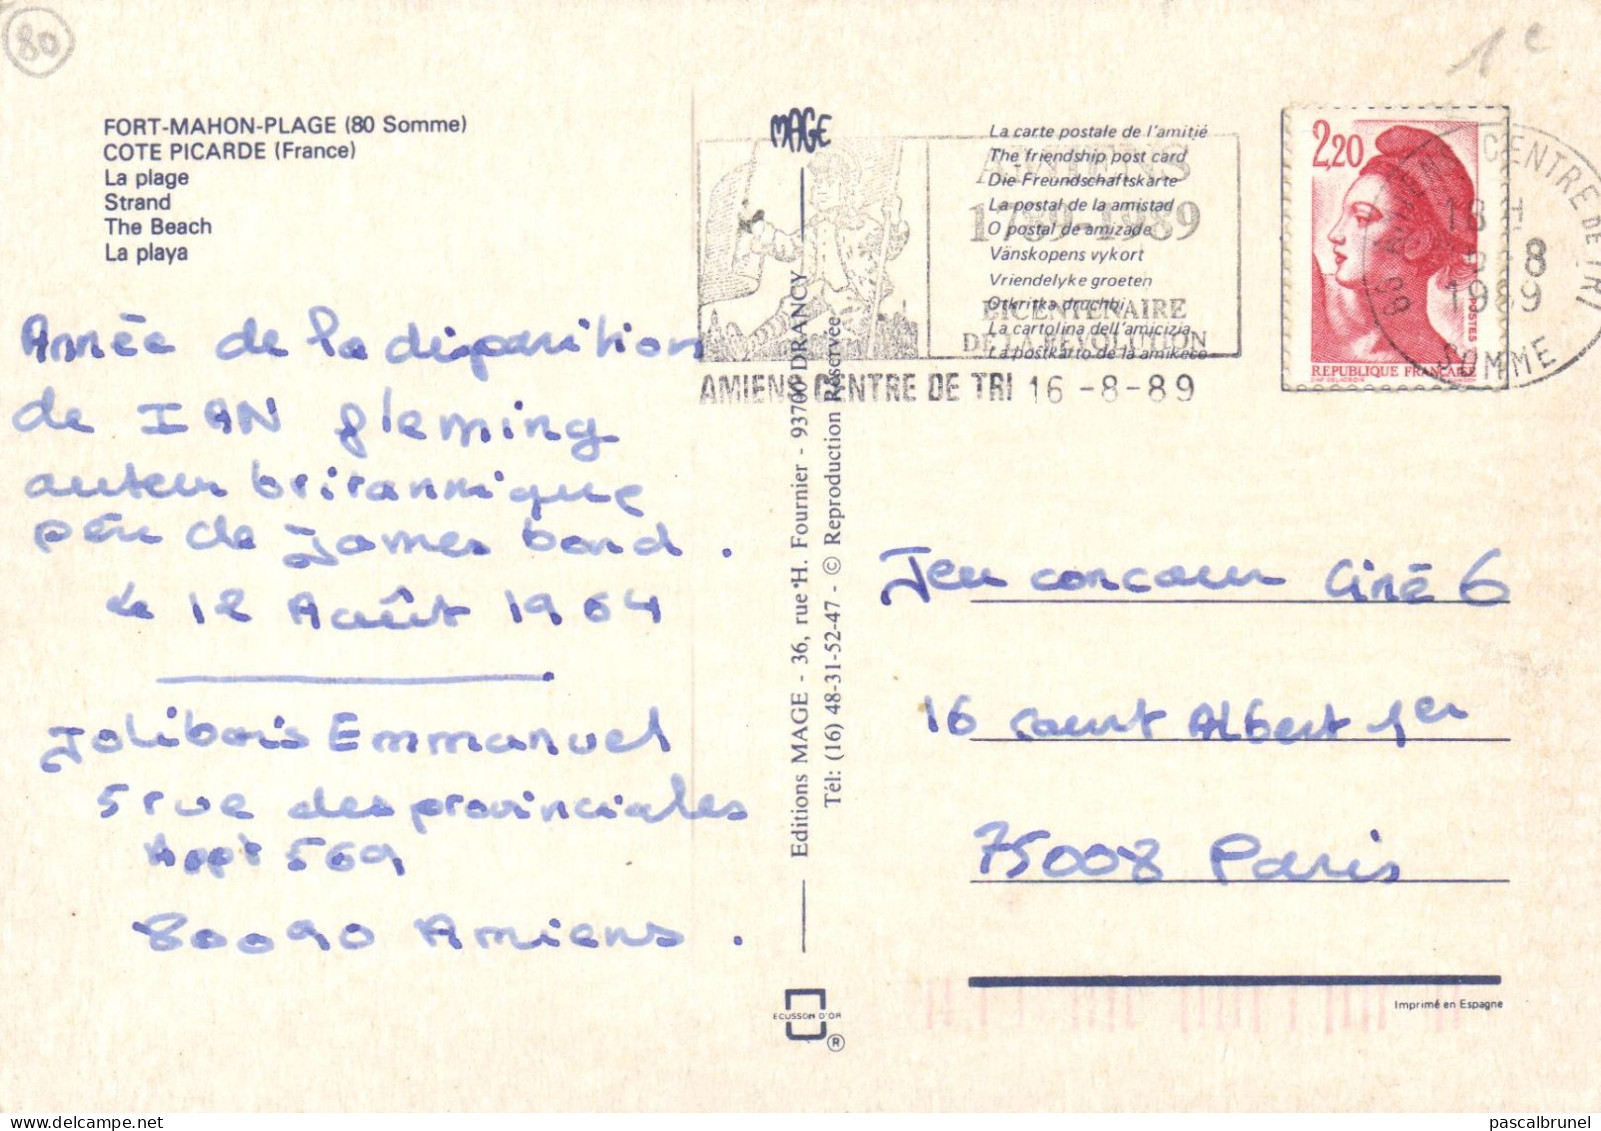 80
1e
FORT-MAHON-PLAGE (80 Somme)
COTE PICARDE (France)
La plage
Strand
The Beach
La playa
Année de la disparition
de IAN fleming
auteur britannique
père de James bond .
le 12 Août 1964
Jolibois Emmanuel
5 rue des provinciales
Appt 569
80090 Amiens .
MAGE
Editions MAGE - 36, rue H. Fournier - 93700 DRANCY
Tél: (16) 48-31-52-47 - © Reproduction Réservée
ECUSSON D'OR
®
La carte postale de l'amitié
The friendship post card
Die Freundschaftskarte
La postal de la amistad
O postal de amizade
Vänskopens vykort
Vriendelyke groeten
Otkritka druchbi
La cartolina dell'amicizia
La postkarto de la amikeco
AMIENS
1789-1989
BICENTENAIRE
DE LA REVOLUTION
AMIENS CENTRE DE TRI 16 -8 -89
2,20
POSTES
REPUBLIQUE FRANÇAISE
CENTRE DE TRI
18 H
-8
1989
SOMME
Jeu concour Ciné 6
16 court Albert 1er
75008 Paris
Imprimé en Espagne
pascalbrunel